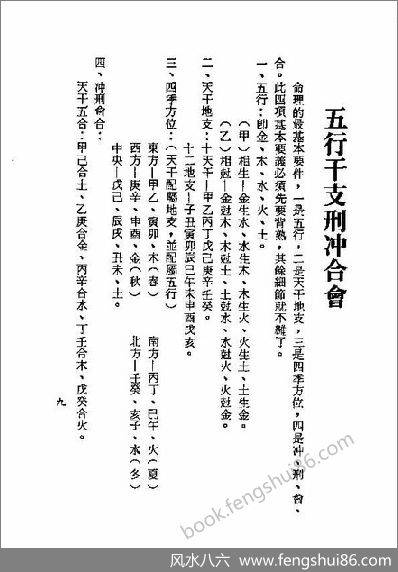 五行干支刑冲合會
命理的最基本要件，一是五行，二是天干地支，三是四季方位，四是冲、刑、會、
合。此四項基本要義必須先要背熟，其餘細節就不難了。
一、五行：即金、木、水、火、土。
（甲）相生—金生水、水生木、木生火、火生土、土生金。
（乙）相尅—金尅木、木尅土、土尅水、水尅火、火尅金。
二、天干地支：十天干—甲乙丙丁戊己庚辛壬癸。
十二地支—子丑寅卯辰巳午未申酉戌亥。
三、四季方位：（天干配屬地支，並配屬五行）
東方—甲乙、寅卯、木（春）　南方—丙丁、巳午、火（夏）
西方—庚辛、申酉、金（秋）　北方—壬癸、亥子、水（冬）
中央—戊己、辰戌、丑未、土。
四、冲刑會合：
天干五合：甲己合土、乙庚合金、丙辛合水、丁壬合木、戊癸合火。
九
book.fengshui86.com
风水八六 - www.fengshui86.com